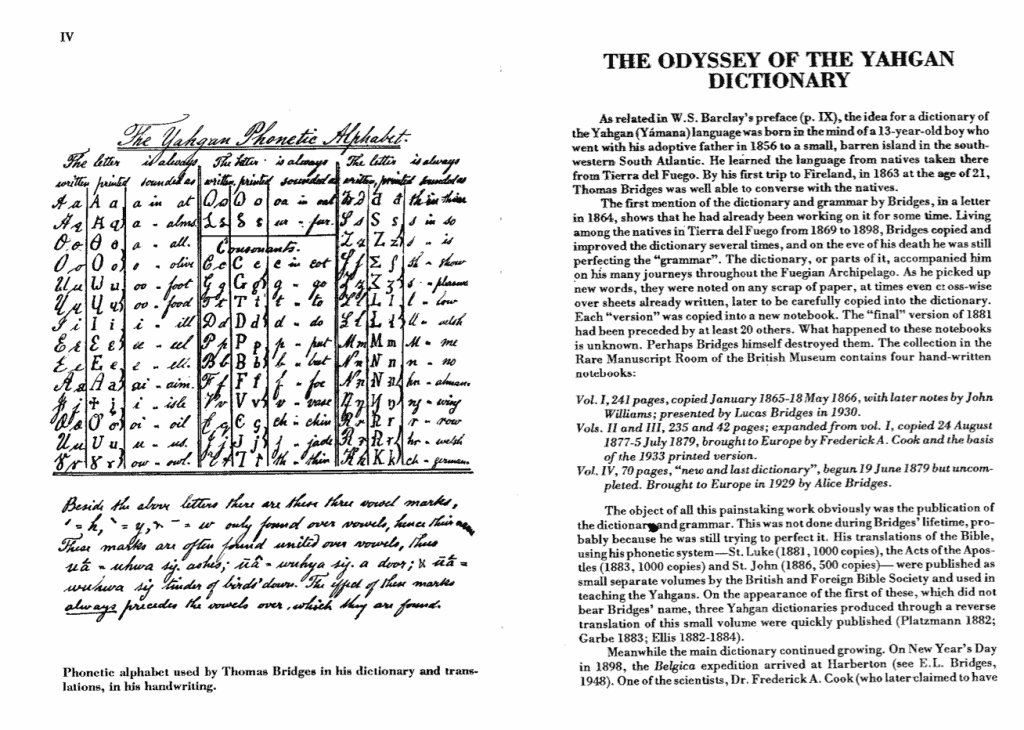 IV
The Yahgan Phonetic Alphabet.
The letter is always The letter is always The letter is always
written printed sounded as written, printed sounded as written, printed sounded as
A a A a a in at
a - alms.
a - all.
O o O o o - olive
U u oo - foot
oo - food
I i I i i - ill
E e e - ell.
ai - aim.
i - isle
oi - oil
U u U u u - us.
ow - owl.
oa in oat
ur - fur.
Consonants.
c in cot
G g G g g - go
T t t - to
D d D d d - do
P p P p p - put
B b B b b - but
F f F f f - foe
V v V v v - vase
ch - chin
J j J j j - jade
th - thin
th in thine
S s S s s in so
Z z Z z s - is
sh - show
s - pleasure
L l L l l - low
ll - welsh
M m M m M - me
N n N n n - no
hn - alman
ng - wing
R r R r r - row
hr - welsh
K k K k ch - german
Beside the above letters there are these three vowel marks,
' = h, ` = y, ~ = w only found over vowels, hence their
These marks are often found united over vowels, thus
= uhwa sig. ashes; = wuhya sig. a door; =
wuhwa sig tinder of birds' down. The effect of these marks
always precedes the vowels over which they are found.
Phonetic alphabet used by Thomas Bridges in his dictionary and trans-
lations, in his handwriting.
THE ODYSSEY OF THE YAHGAN
DICTIONARY
As related in W.S. Barclay's preface (p. IX), the idea for a dictionary of
the Yahgan (Yámana) language was born in the mind of a 13-year-old boy who
went with his adoptive father in 1856 to a small, barren island in the south-
western South Atlantic. He learned the language from natives taken there
from Tierra del Fuego. By his first trip to Fireland, in 1863 at the age of 21,
Thomas Bridges was well able to converse with the natives.
The first mention of the dictionary and grammar by Bridges, in a letter
in 1864, shows that he had already been working on it for some time. Living
among the natives in Tierra del Fuego from 1869 to 1898, Bridges copied and
improved the dictionary several times, and on the eve of his death he was still
perfecting the "grammar". The dictionary, or parts of it, accompanied him
on his many journeys throughout the Fuegian Archipelago. As he picked up
new words, they were noted on any scrap of paper, at times even cross-wise
over sheets already written, later to be carefully copied into the dictionary.
Each "version" was copied into a new notebook. The "final" version of 1881
had been preceded by at least 20 others. What happened to these notebooks
is unknown. Perhaps Bridges himself destroyed them. The collection in the
Rare Manuscript Room of the British Museum contains four hand-written
notebooks:
Vol. I, 241 pages, copied January 1865-18 May 1866, with later notes by John
Williams; presented by Lucas Bridges in 1930.
Vols. II and III, 235 and 42 pages; expanded from vol. I, copied 24 August
1877-5 July 1879, brought to Europe by Frederick A. Cook and the basis
of the 1933 printed version.
Vol. IV, 70 pages, "new and last dictionary", begun 19 June 1879 but uncom-
pleted. Brought to Europe in 1929 by Alice Bridges.
The object of all this painstaking work obviously was the publication of
the dictionary and grammar. This was not done during Bridges' lifetime, pro-
bably because he was still trying to perfect it. His translations of the Bible,
using his phonetic system—St. Luke (1881, 1000 copies), the Acts of the Apos-
tles (1883, 1000 copies) and St. John (1886, 500 copies)— were published as
small separate volumes by the British and Foreign Bible Society and used in
teaching the Yahgans. On the appearance of the first of these, which did not
bear Bridges' name, three Yahgan dictionaries produced through a reverse
translation of this small volume were quickly published (Platzmann 1882;
Garbe 1883; Ellis 1882-1884).
Meanwhile the main dictionary continued growing. On New Year's Day
in 1898, the Belgica expedition arrived at Harberton (see E.L. Bridges,
1948). One of the scientists, Dr. Frederick A. Cook (who later claimed to have